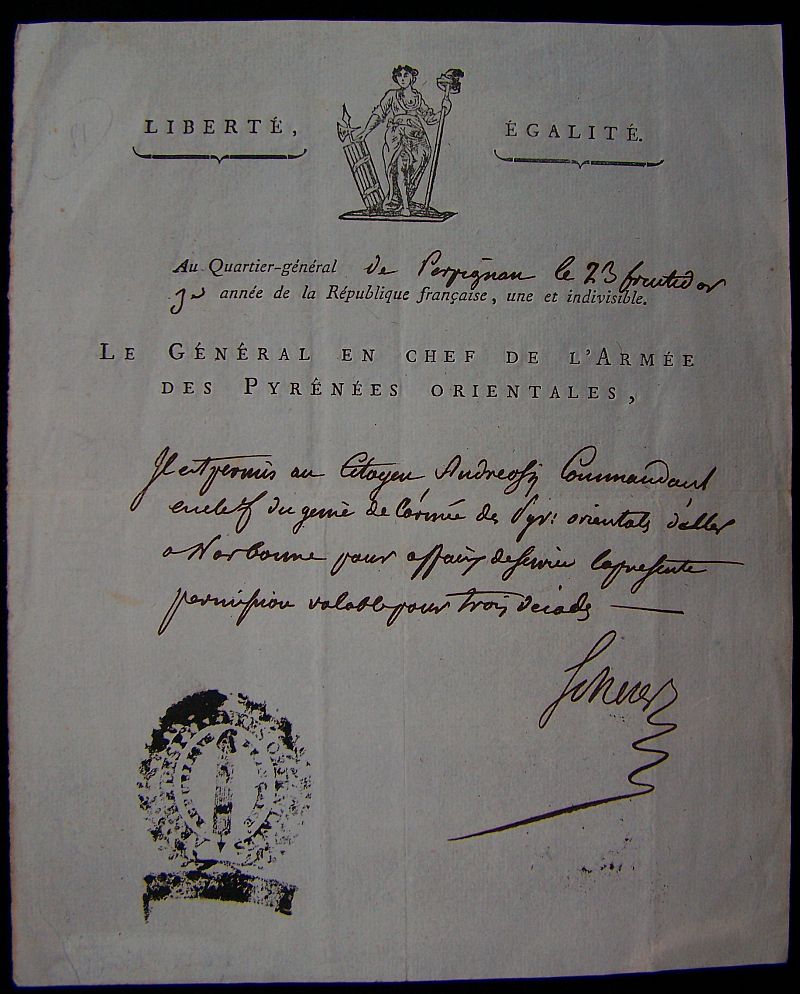 LIBERTÉ, ÉGALITÉ.
Au Quartier-général de Perpignan le 23 fructidor
3e année de la République française, une et indivisible.
LE GÉNÉRAL EN CHEF DE L'ARMÉE
DES PYRÉNÉES ORIENTALES,
Il est permis au Citoyen Andreossy Commandant
en chef du genie de l'armée des Pyr: orientales d'aller
a Narbonne pour affaires de service la presente
permission valable pour trois decades
Scherer